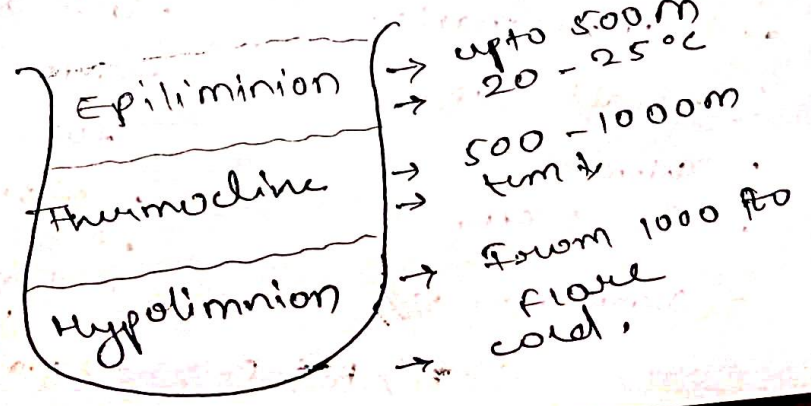 Epiliminion
→ upto 500.m
→ 20 - 25°C
Thermocline
→ 500 - 1000m
→ tem ↓
Hypolimnion
→ From 1000 to
flore
→ cold.